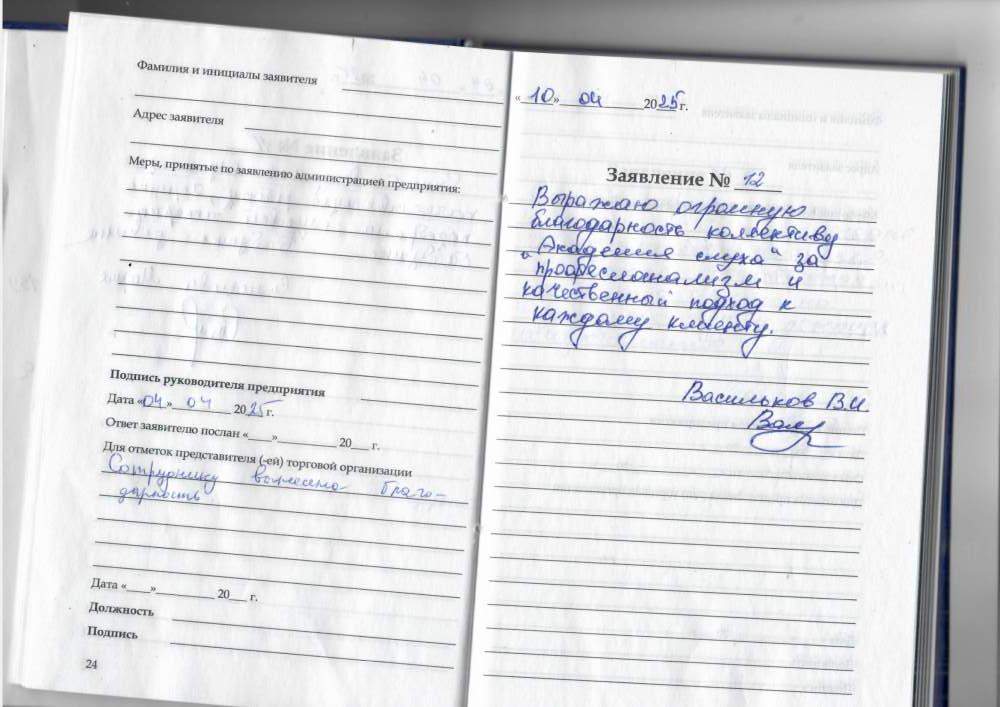 Фамилия и инициалы заявителя
Адрес заявителя
Меры, принятые по заявлению администрацией предприятия:
Подпись руководителя предприятия
Дата «04» 04 2025 г.
Ответ заявителю послан «____»__________ 20___ г.
Для отметок представителя (-ей) торговой организации
Сотруднику вынесена благо-
дарность
Дата «____»__________ 20___ г.
Должность
Подпись
24
«10» 04 2025 г.
Заявление № 12
Выражаю огромную
благодарность коллективу
"Академия слуха" за
профессионализм и
качественный подход к
каждому клиенту.
Васильков В.И.